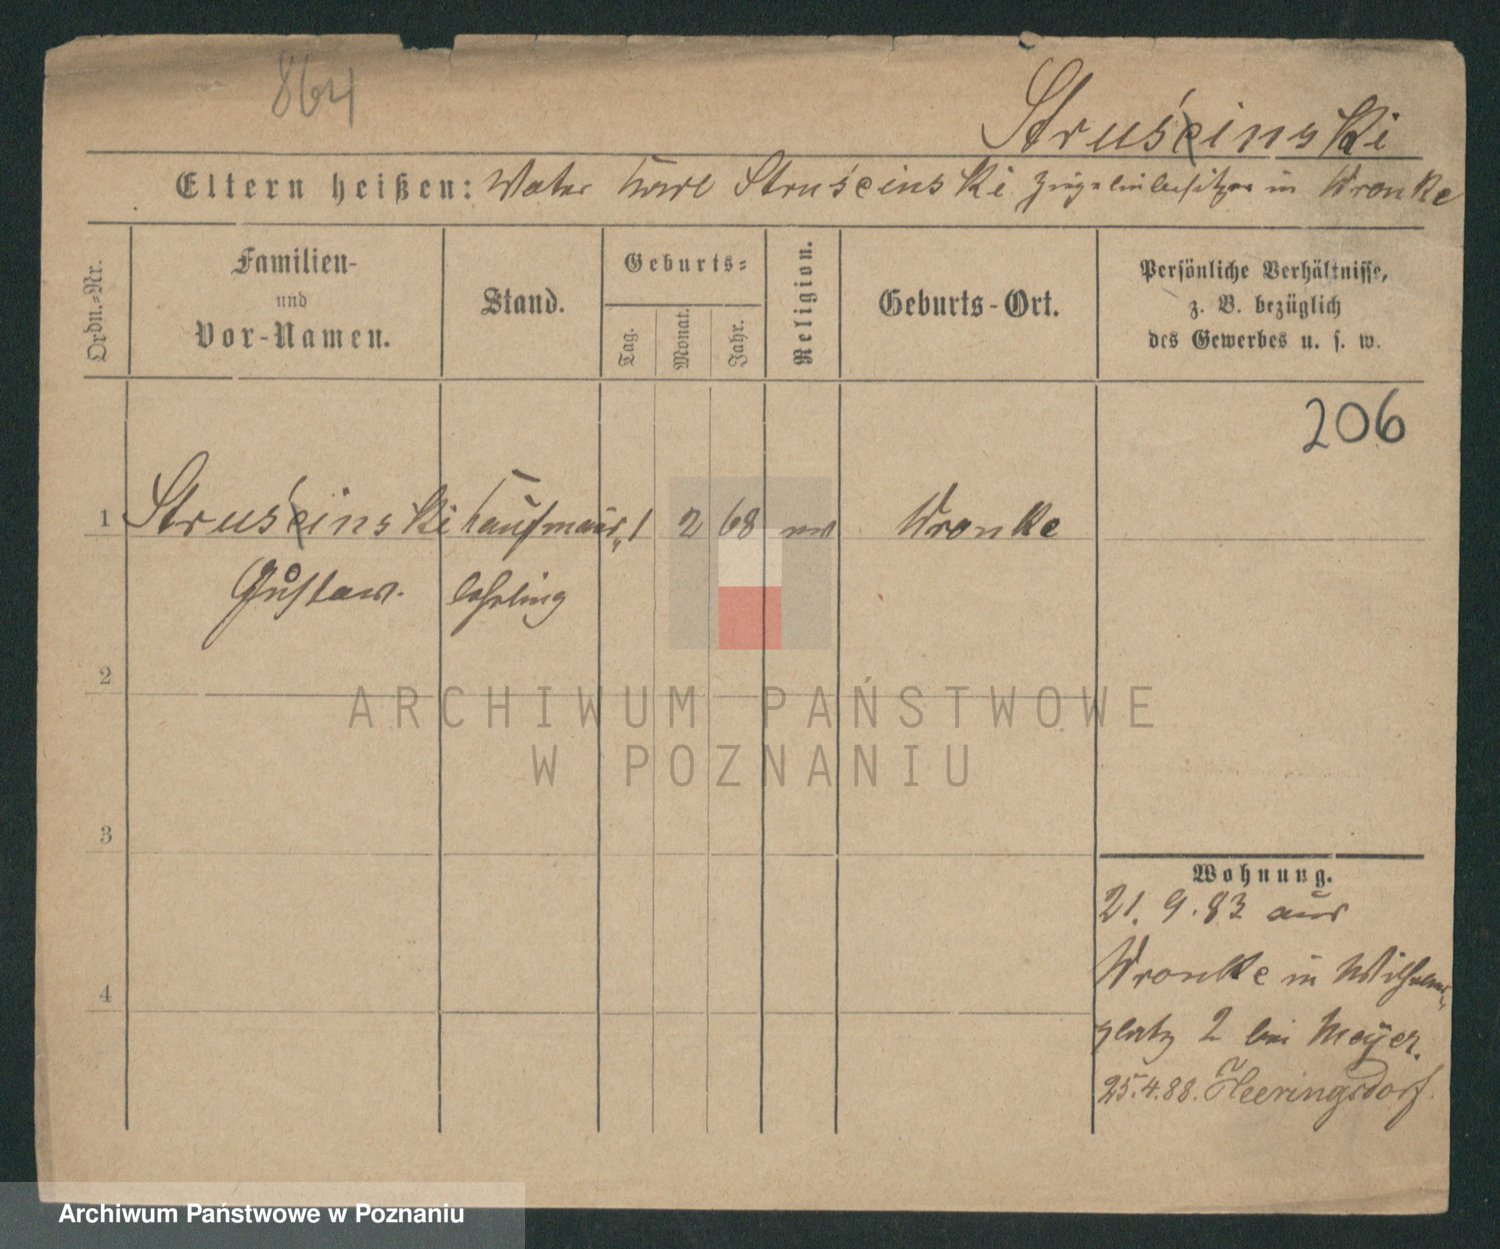 864
Strusinski
Eltern heißen: Vater Karl Struseinski Ziegeleibesitzer in Wronke
Ordn.-Nr.
Familien-
und
Vor-Namen.
Stand.
Geburts-
Tag.
Monat.
Jahr.
Religion.
Geburts-Ort.
Persönliche Verhältnisse,
z. B. bezüglich
des Gewerbes u. s. w.
206
1 Strusinski Kaufmanns- 1 2 68 Wronke
Gustaw. lehrling
2
3
4
Wohnung.
21. 9. 83 aus
Wronke in Wilhelms-
platz 2 bei Meyer.
25.4.88. Heeringsdorf.
ARCHIWUM PAŃSTWOWE
W POZNANIU
Archiwum Państwowe w Poznaniu